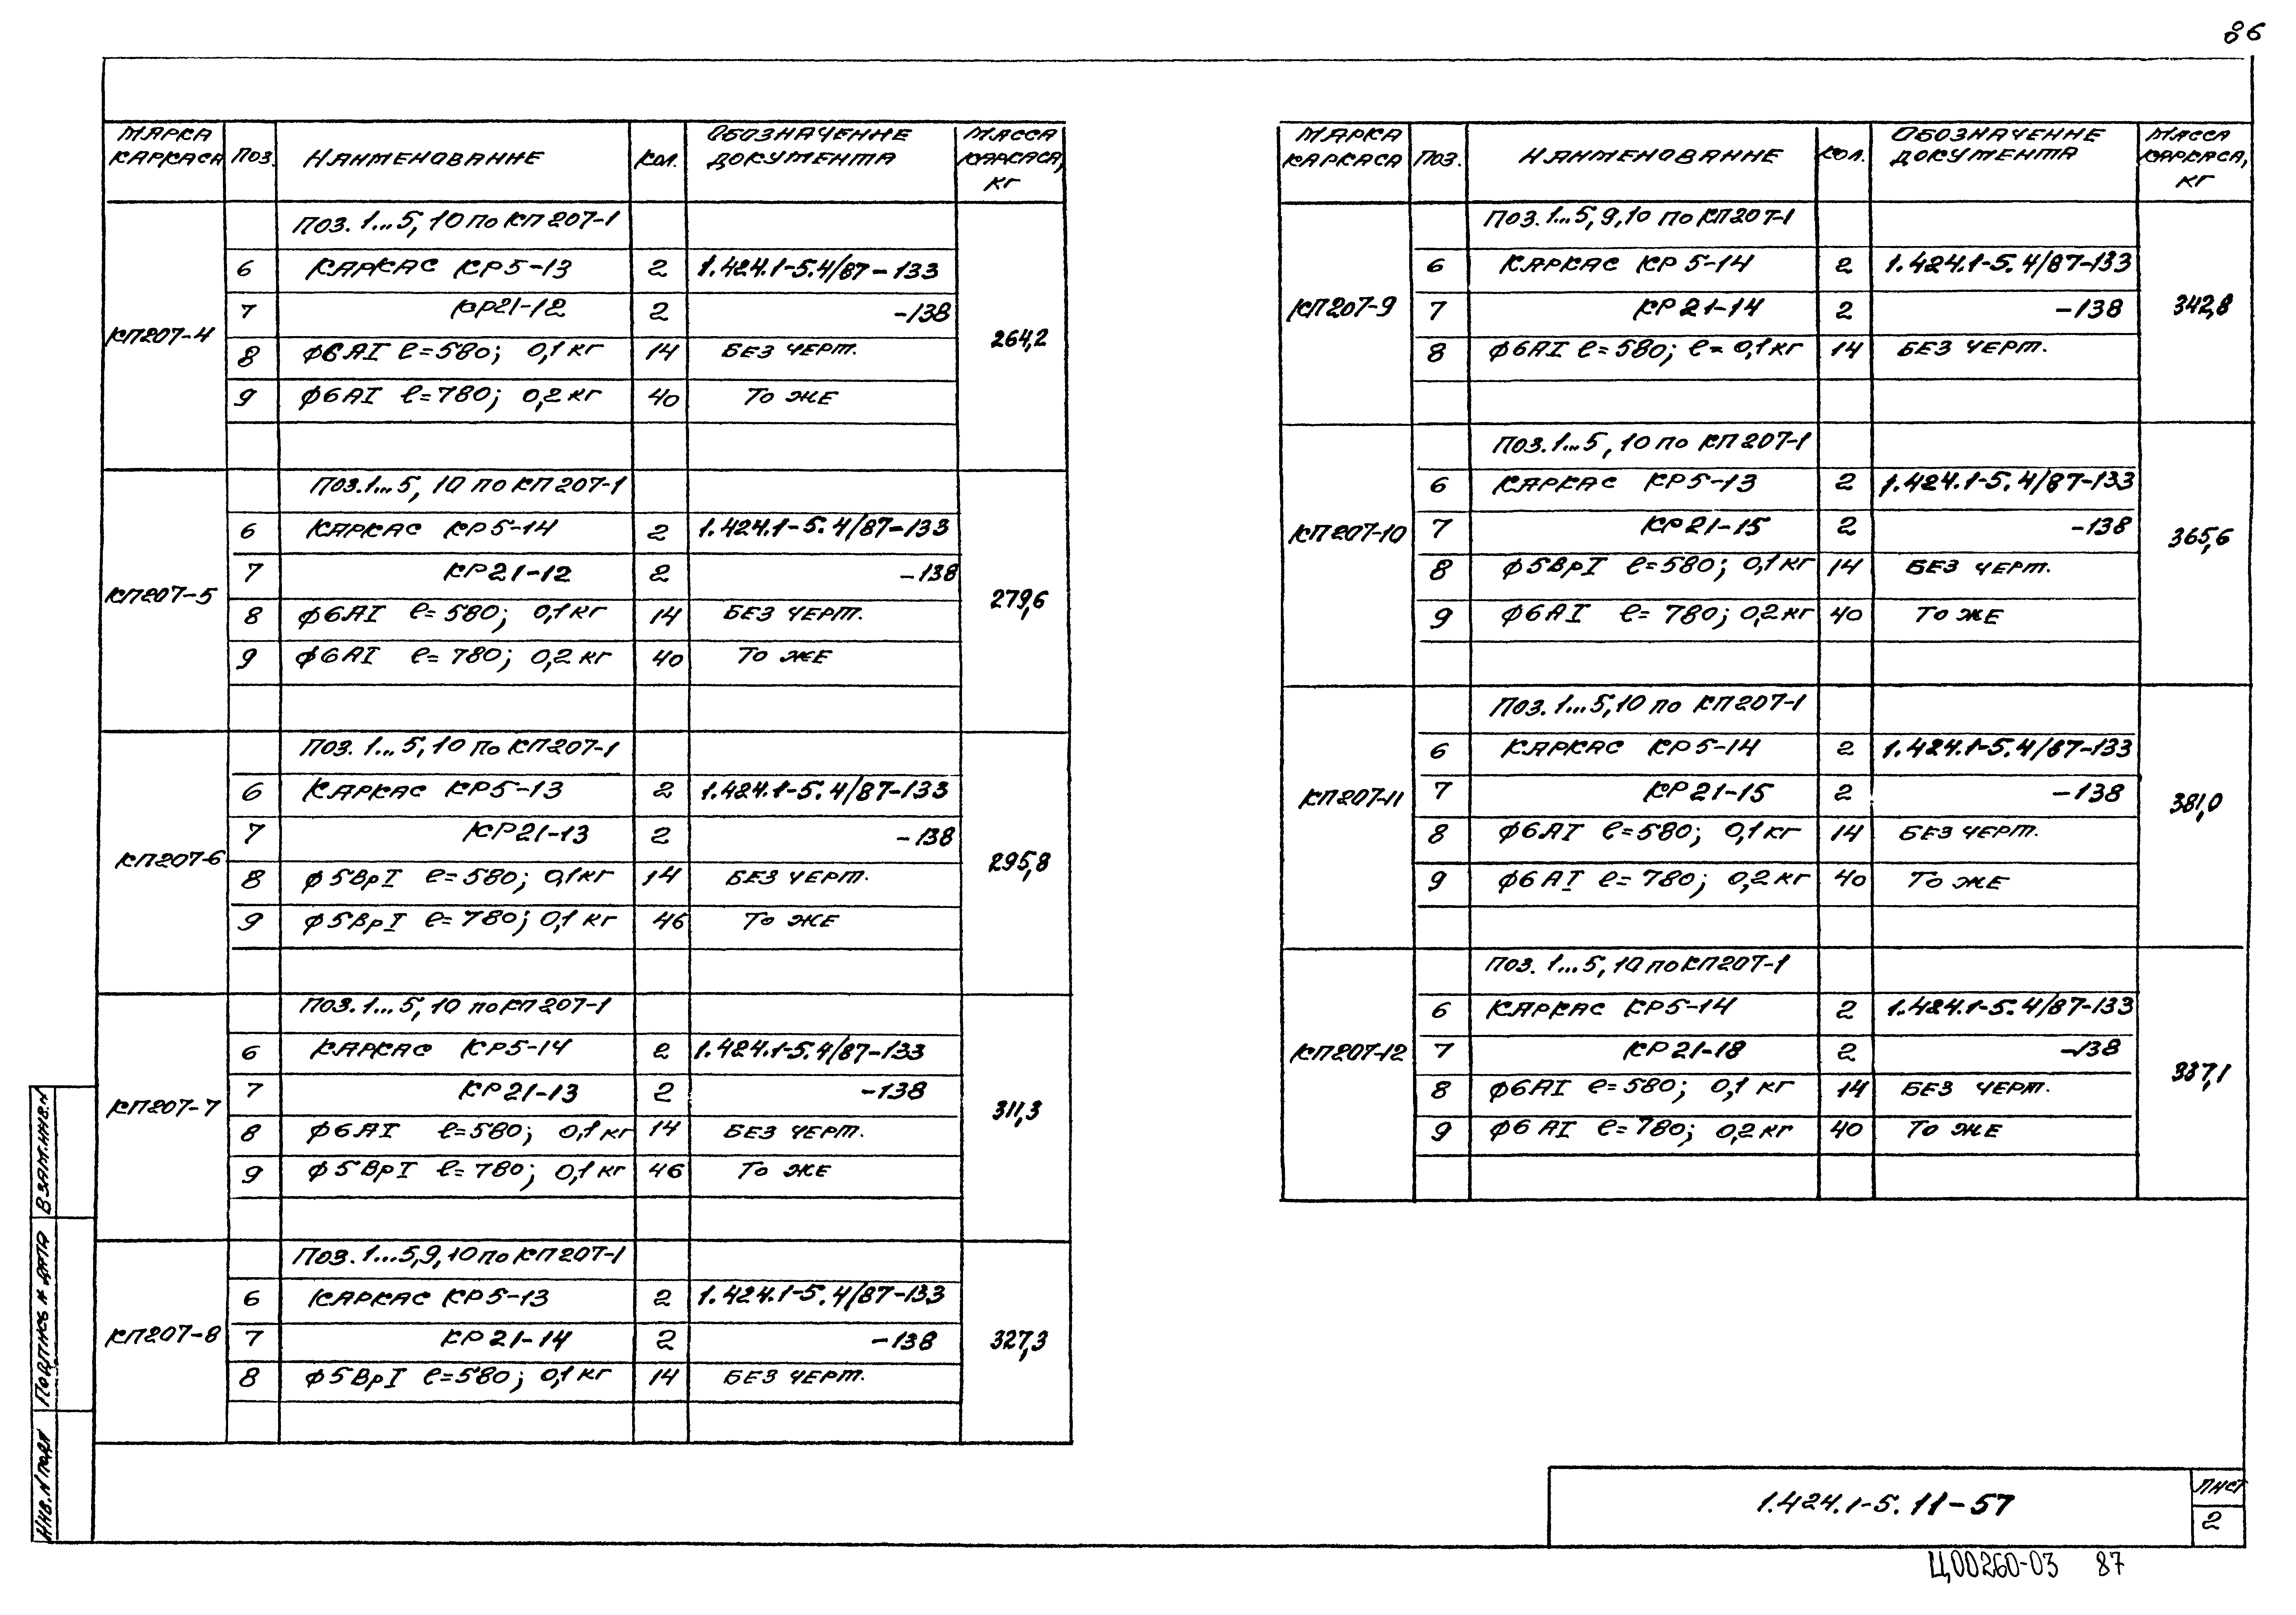 86
МАРКА КАРКАСА ПОЗ. НАИМЕНОВАНИЕ КОЛ. ОБОЗНАЧЕНИЕ ДОКУМЕНТА МАССА КАРКАСА, КГ
КП207-4 264,2
ПОЗ. 1...5, 10 ПО КП207-1
6 КАРКАС КР5-13 2 1.424.1-5.4/87-133
7 КР21-12 2 -138
8 ϕ6АI ℓ=580; 0,1кг 14 БЕЗ ЧЕРТ.
9 ϕ6АI ℓ=780; 0,2кг 40 ТО ЖЕ
КП207-5 279,6
ПОЗ. 1...5, 10 ПО КП207-1
6 КАРКАС КР5-14 2 1.424.1-5.4/87-133
7 КР21-12 2 -138
8 ϕ6АI ℓ=580; 0,1кг 14 БЕЗ ЧЕРТ.
9 ϕ6АI ℓ=780; 0,2кг 40 ТО ЖЕ
КП207-6 295,8
ПОЗ. 1...5, 10 ПО КП207-1
6 КАРКАС КР5-13 2 1.424.1-5.4/87-133
7 КР21-13 2 -138
8 ϕ5ВрI ℓ=580; 0,1кг 14 БЕЗ ЧЕРТ.
9 ϕ5ВрI ℓ=780; 0,1кг 46 ТО ЖЕ
КП207-7 311,3
ПОЗ. 1...5, 10 ПО КП207-1
6 КАРКАС КР5-14 2 1.424.1-5.4/87-133
7 КР21-13 2 -138
8 ϕ6АI ℓ=580; 0,1кг 14 БЕЗ ЧЕРТ.
9 ϕ5ВрI ℓ=780; 0,1кг 46 ТО ЖЕ
КП207-8 327,3
ПОЗ. 1...5,9,10 ПО КП207-1
6 КАРКАС КР5-13 2 1.424.1-5.4/87-133
7 КР21-14 2 -138
8 ϕ5ВрI ℓ=580; 0,1кг 14 БЕЗ ЧЕРТ.
МАРКА КАРКАСА ПОЗ. НАИМЕНОВАНИЕ КОЛ. ОБОЗНАЧЕНИЕ ДОКУМЕНТА МАССА КАРКАСА, КГ
КП207-9 342,8
ПОЗ. 1...5,9,10 ПО КП207-1
6 КАРКАС КР5-14 2 1.424.1-5.4/87-133
7 КР21-14 2 -138
8 ϕ6АI ℓ=580; ℓ=0,1кг 14 БЕЗ ЧЕРТ.
КП207-10 365,6
ПОЗ. 1...5, 10 ПО КП207-1
6 КАРКАС КР5-13 2 1.424.1-5.4/87-133
7 КР21-15 2 -138
8 ϕ5ВрI ℓ=580; 0,1кг 14 БЕЗ ЧЕРТ.
9 ϕ6АI ℓ=780; 0,2кг 40 ТО ЖЕ
КП207-11 381,0
ПОЗ. 1...5,10 ПО КП207-1
6 КАРКАС КР5-14 2 1.424.1-5.4/87-133
7 КР21-15 2 -138
8 ϕ6АI ℓ=580; 0,1кг 14 БЕЗ ЧЕРТ.
9 ϕ6АI ℓ=780; 0,2кг 40 ТО ЖЕ
КП207-12 337,1
ПОЗ. 1...5, 10 ПО КП207-1
6 КАРКАС КР5-14 2 1.424.1-5.4/87-133
7 КР21-18 2 -138
8 ϕ6АI ℓ=580; 0,1кг 14 БЕЗ ЧЕРТ.
9 ϕ6АI ℓ=780; 0,2кг 40 ТО ЖЕ
ИНВ. N ПОДЛ ПОДПИСЬ И ДАТА ВЗАМ.ИНВ.N
1.424.1-5.11-57
ЛИСТ
2
Ц00260-03 87